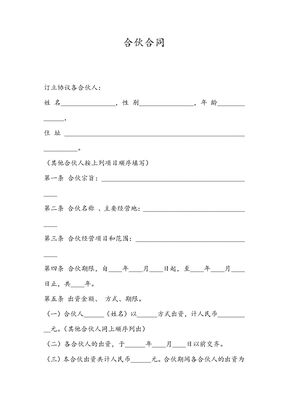 合伙合同
订立协议各合伙人:
姓 名______________，性 别____________，年 龄_______
_____，
住 址_______________________________________
________。
（其他合伙人按上列项目顺序填写）
第一条 合伙宗旨：____________________________
____
第二条 合伙名称 、主要经营地：___________________
____
第三条 合伙经营项目和范围：______________________
____
第四条 合伙期限，自____年____月____日起，至____年____月____
日止，共____年。
第五条 出资金额、 方式、期限。
（一）合伙人_____（姓名）以_____方式出资，计人民币_______
__元。（其他合伙人同上顺序列出）
（二）各合伙人的出资，于_____年____月____日以前交齐。
（三）本合伙出资共计人民币_____元。合伙期间各合伙人的出资为